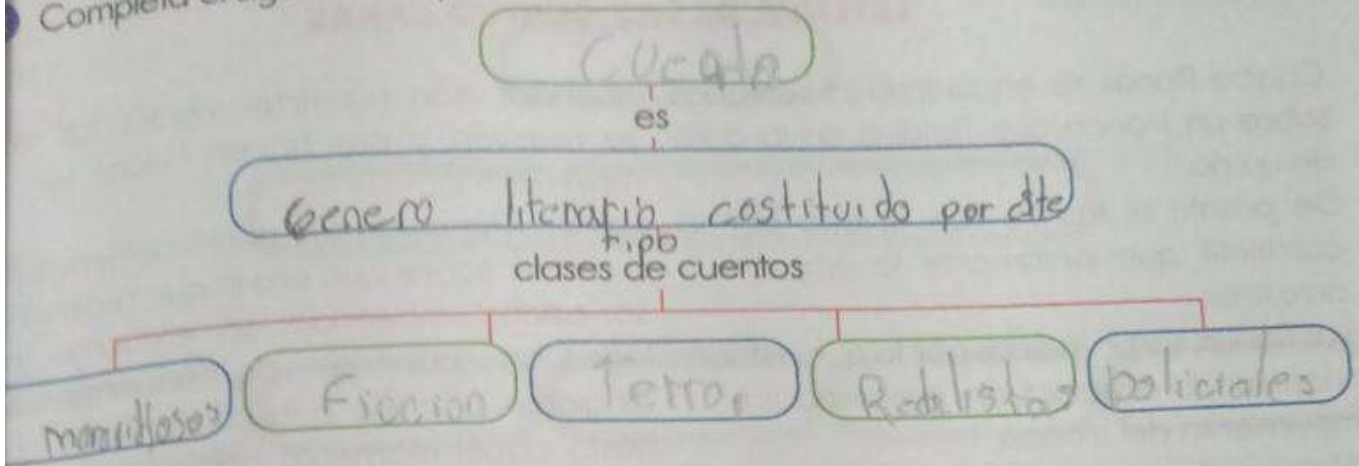 Completa
Cuento
es
Genero literario costituido por este
tipo
clases de cuentos
maravillosos Ficcion Terror Realistas policiales